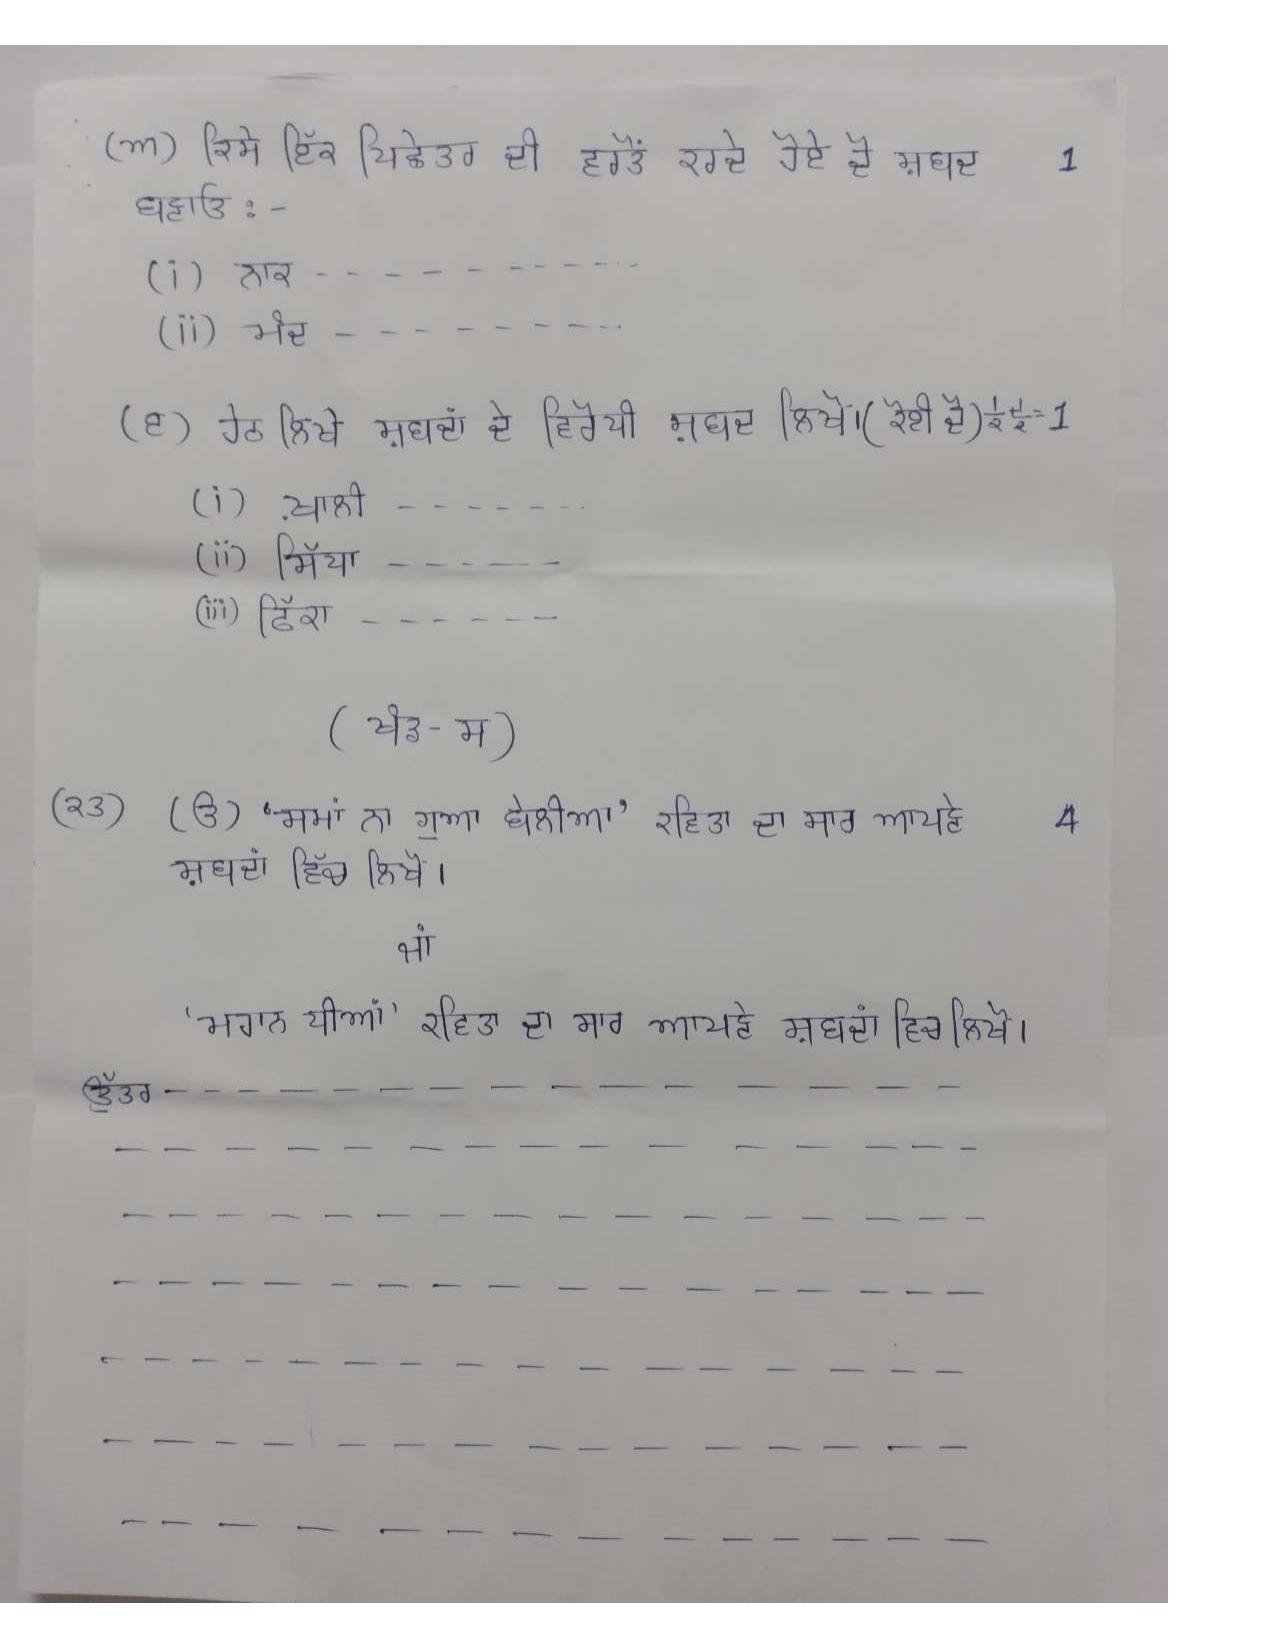 (ਅ) ਕਿਸੇ ਇੱਕ ਪਿਛੇਤਰ ਦੀ ਵਰਤੋਂ ਕਰਦੇ ਹੋਏ ਦੋ ਸ਼ਬਦ 1
ਬਣਾਓ :-
(i) ਨਾਕ - - - - - - - - - - -
(ii) ਮੰਦ - - - - - - - - -
(ੲ) ਹੇਠ ਲਿਖੇ ਸ਼ਬਦਾਂ ਦੇ ਵਿਰੋਧੀ ਸ਼ਬਦ ਲਿਖੋ।(ਕੋਈ ਦੋ) ½ ½=1
(i) ਖ਼ਾਲੀ - - - - - - -
(ii) ਸਿੱਧਾ - - - - - -
(iii) ਫਿੱਕਾ - - - - - -
(ਖੰਡ-ਸ)
(23) (ੳ) ‘ਸਮਾਂ ਨਾ ਗੁਆ ਬੇਲੀਆ’ ਕਵਿਤਾ ਦਾ ਸਾਰ ਆਪਣੇ 4
ਸ਼ਬਦਾਂ ਵਿੱਚ ਲਿਖੋ।
ਜਾਂ
‘ਮਹਾਨ ਧੀਆਂ’ ਕਵਿਤਾ ਦਾ ਸਾਰ ਆਪਣੇ ਸ਼ਬਦਾਂ ਵਿਚ ਲਿਖੋ।
ਉੱਤਰ - - - - - - - - - - - - - - -